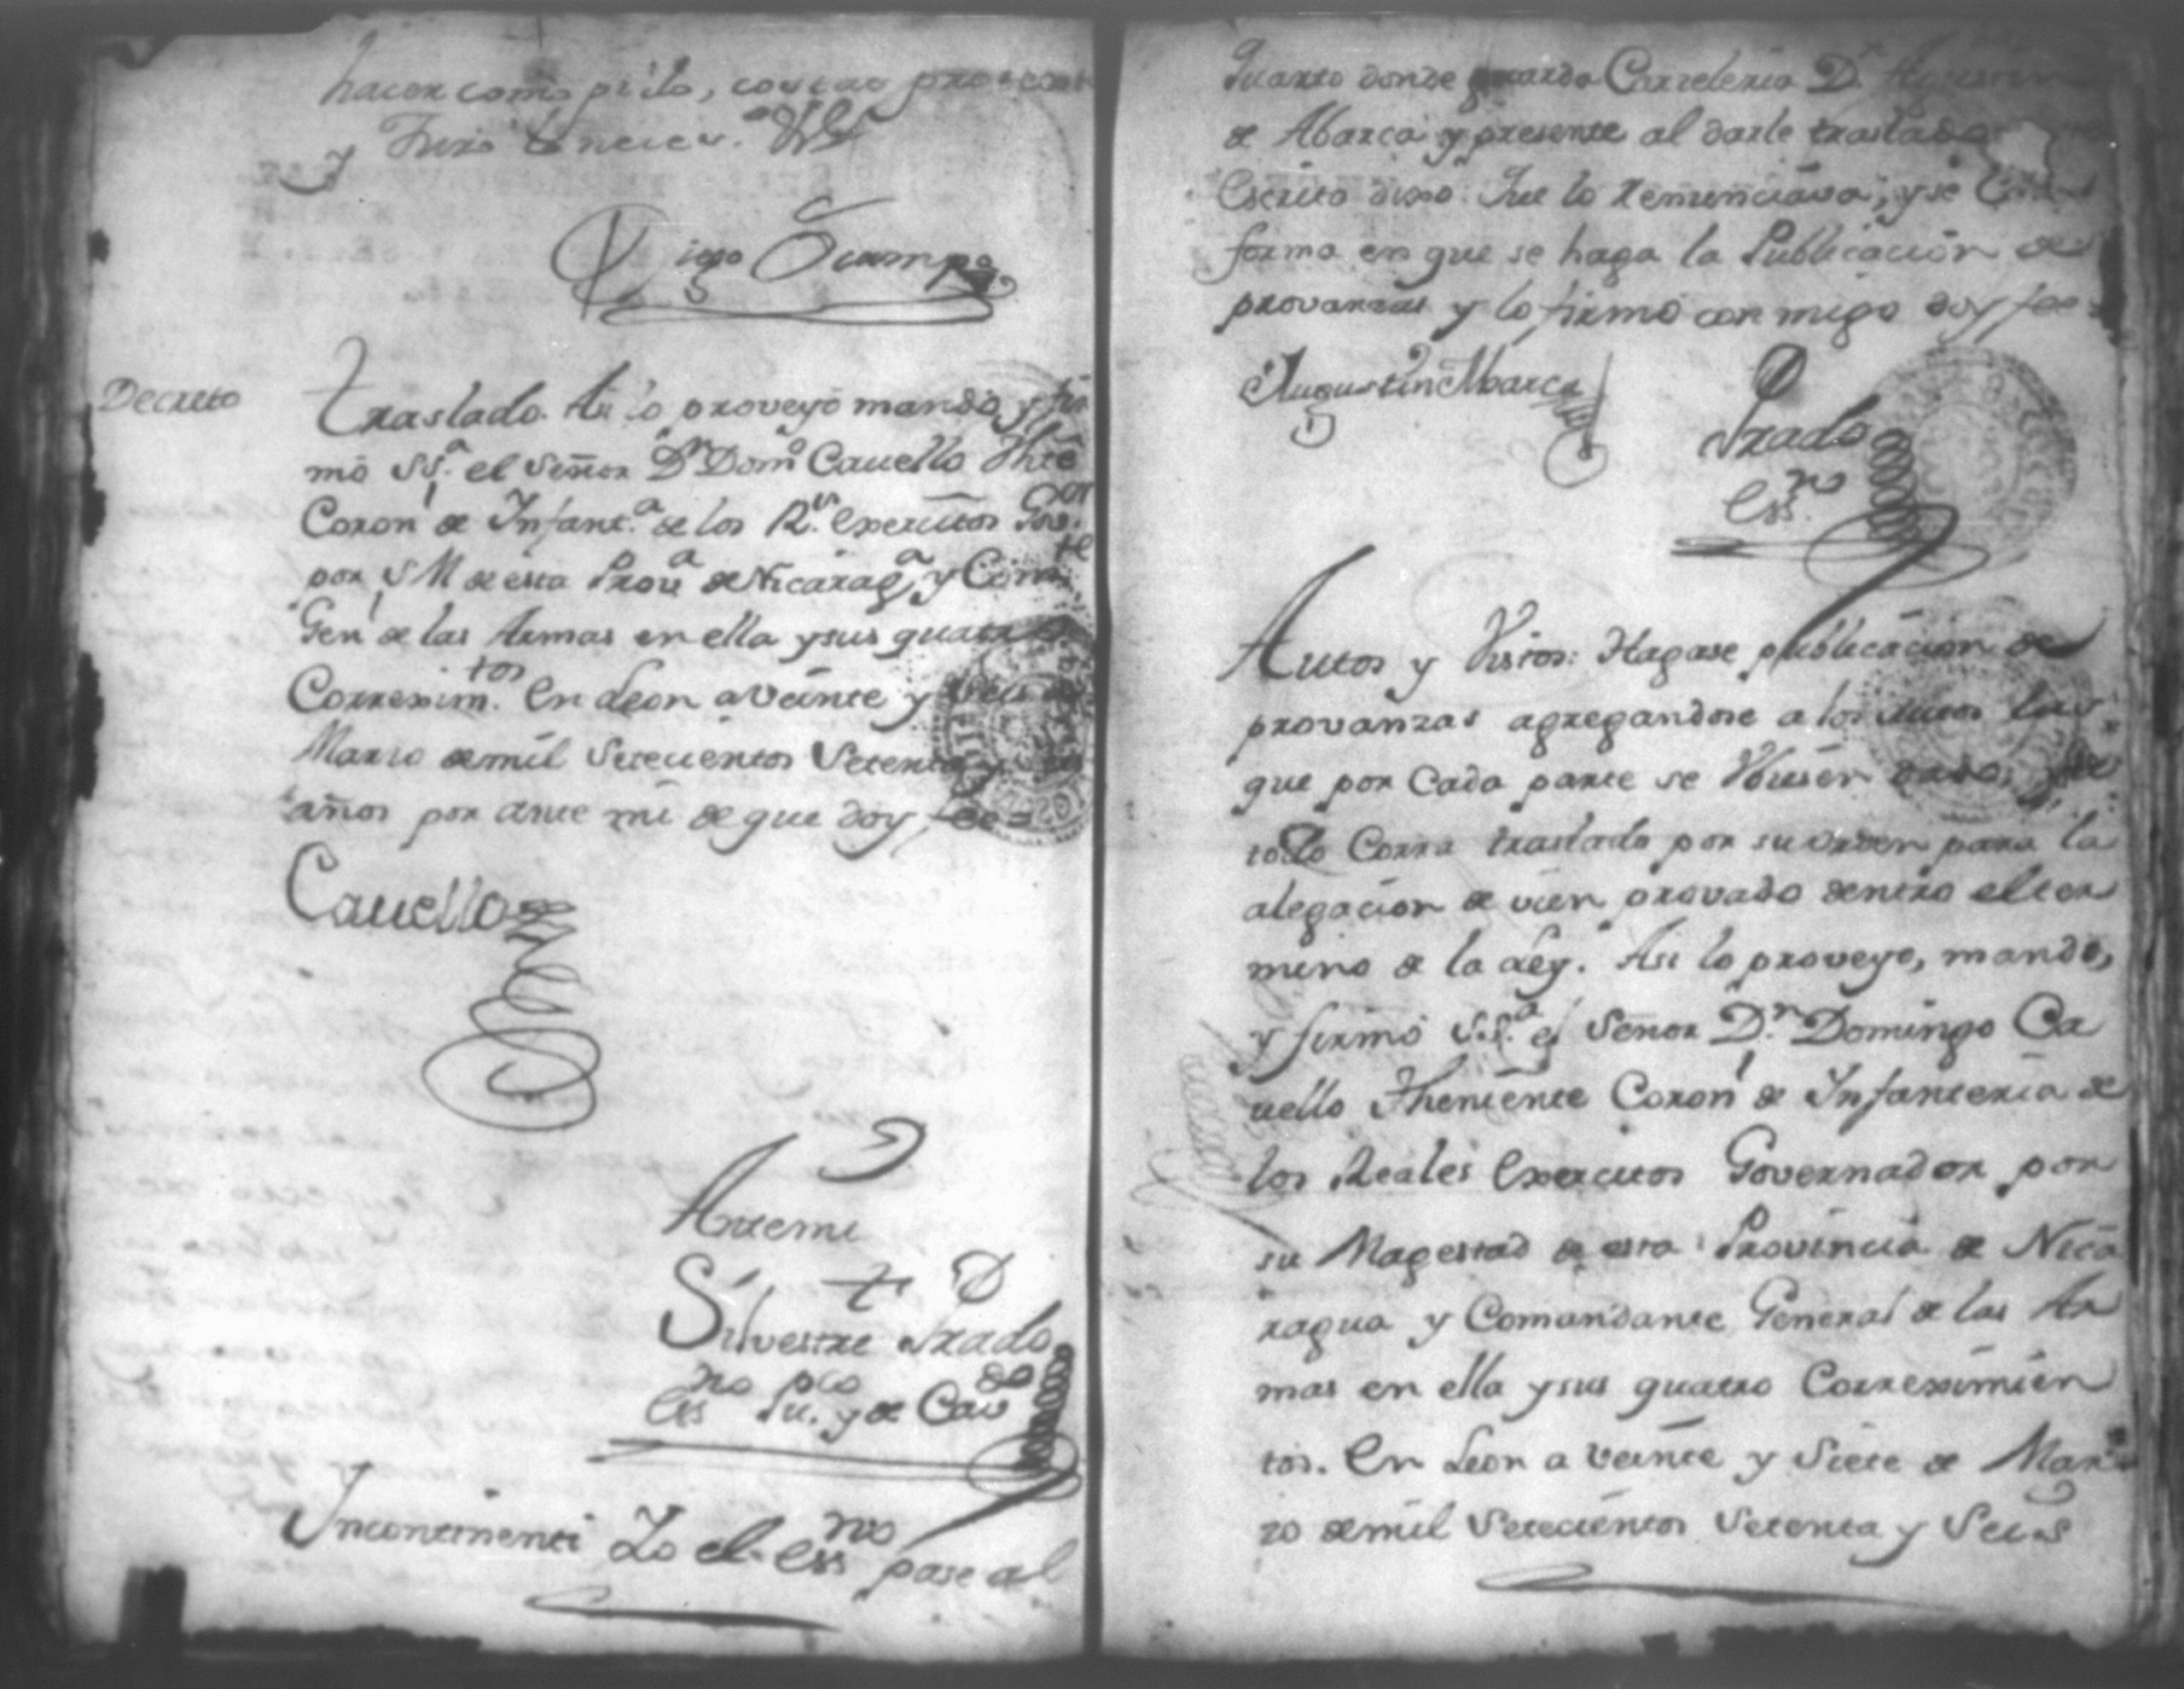 hacer como pido, costas protesto
y Juro lo neces.º &.ª
Diego Ocampo
Decreto
Traslado. Asi lo proveyó mandó, y fir
mó SS.ª el Señor D.n Dom.º Cauello Thẽ
Coron.l de Infant.ª de los R.s Exercitos Gov.or
por S M de esta Prov.ª de Nicarag.ª y Com.te
Gen.l de las Armas en ella y sus quatro
Correxim.tos En Leon a veinte y seis de
Marzo de mil Setecientos Setenta y
años por ante mi de que doy fee =
Cauello
Ante mi
Silvestre Prado
Ess.no Pu.co y de Cav.do
Incontinenti Yo el Ess.no pase al
Quarto donde guarda Carceleria D.n Agustin
de Abarca y presente al darle traslado
Escrito dixo: Que lo renunciava, y se
forma en que se haga la Publicacion de
provanzas y lo firmó conmigo doy fee
Augustin Abarca
Prado
Ess.no
Autos y Vistos: Hagase publicacion de
provanzas agregandose a los autos las
que por Cada parte se Vbiesen dado, y de
todo Corra traslado por su orden para la
alegacion de vien provado dentro el ter
mino de la Ley. Asi lo proveyo, mandó,
y firmó S.S.ª el Señor D.n Domingo Ca
uello Theniente Coron.l de Infanteria de
los Reales Exercitos Governador por
su Magestad de esta Provincia de Nica
ragua y Comandante General de las Ar
mas en ella y sus quatro Correximien
tos. En Leon a veinte y Siete de Mar
zo de mil Setecientos Setenta y Seis